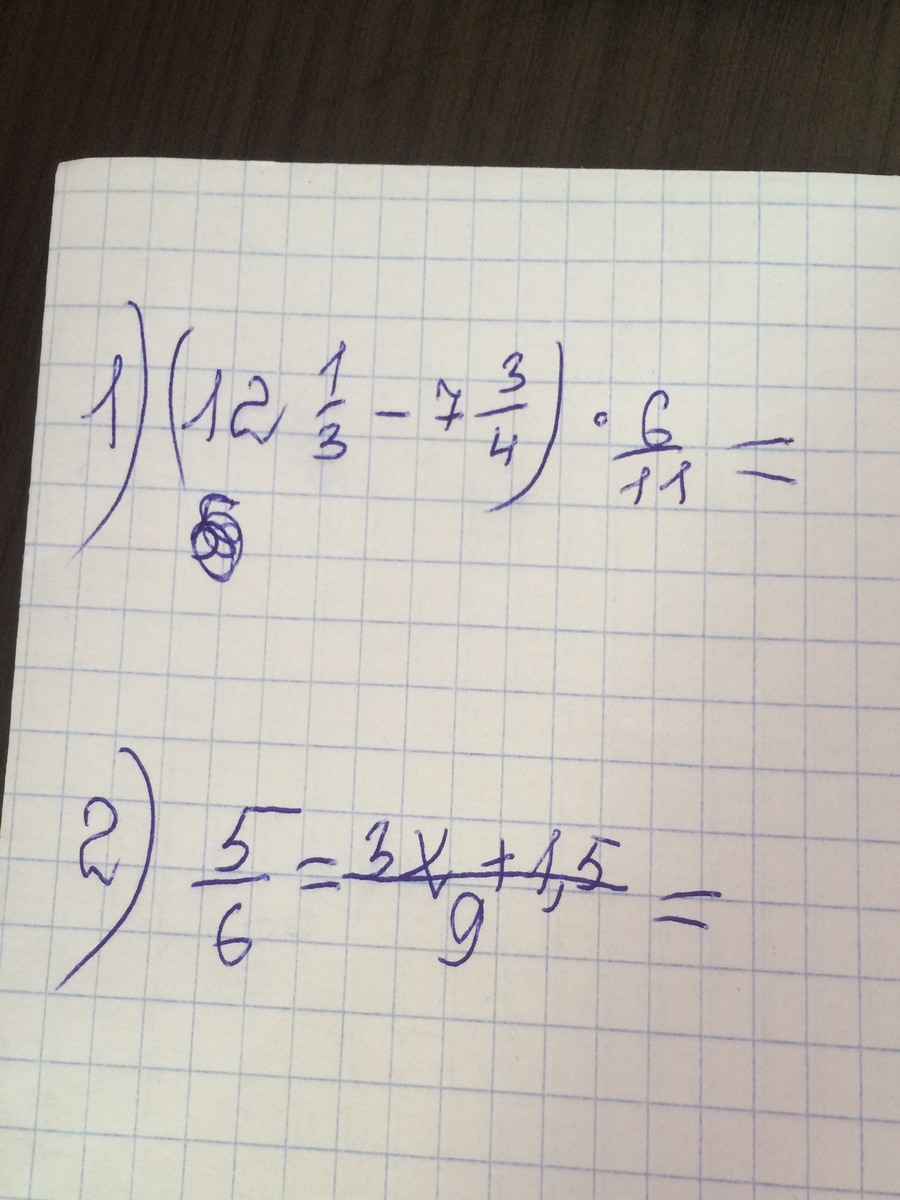 1) (12 1/3 - 7 3/4) · 6/11 =
2) 5/6 = (3x + 1,5)/9 =